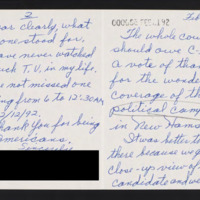 2
ear clearly, what
one stood for.
have never watched
uch T.V. in my life,
as not missed one
ing from 6 to 12:30 AM
/12/92.
hank you for being
americans.
Feb
000558 FEB 192
The whole cou
should owe C.
a vote of than
for the wonder
coverage of th
political camp
in New Hams
It was better to
there because we g
close-up view of
candidate and we